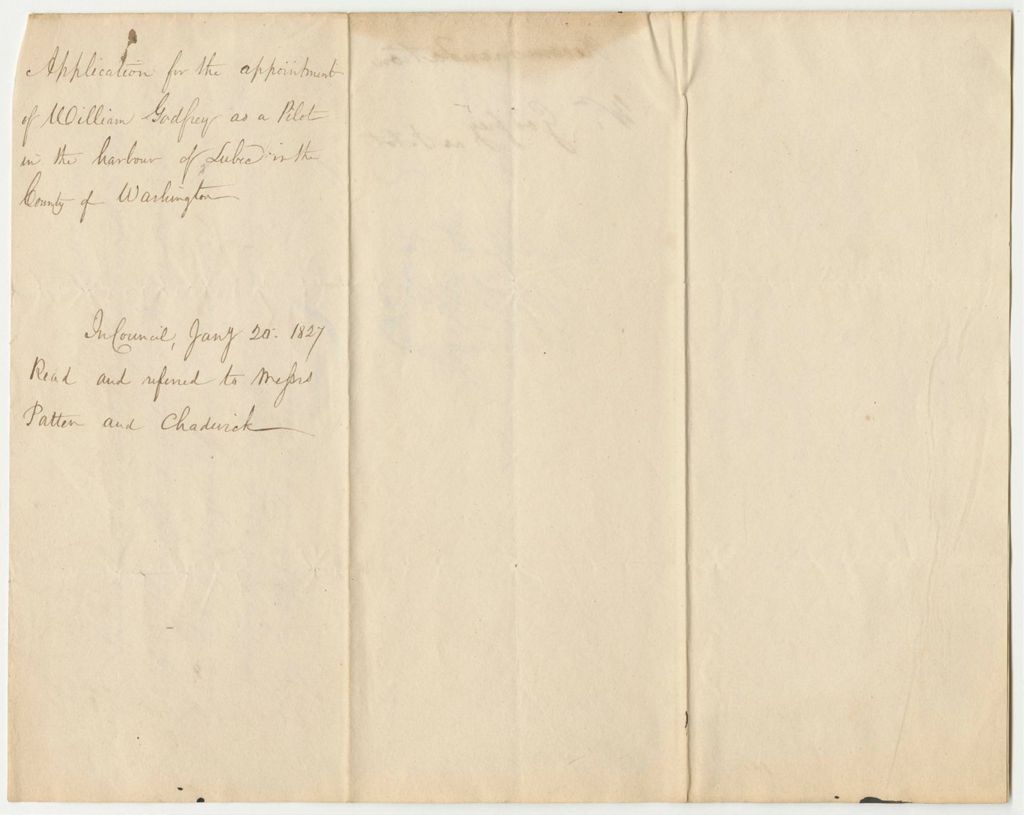 Application for the appointment
of William Godfrey as a Pilot
in the harbour of Lubec in the
County of Washington
In Council, Jany 20. 1827
Read and referred to Messrs
Patten and Chadwick